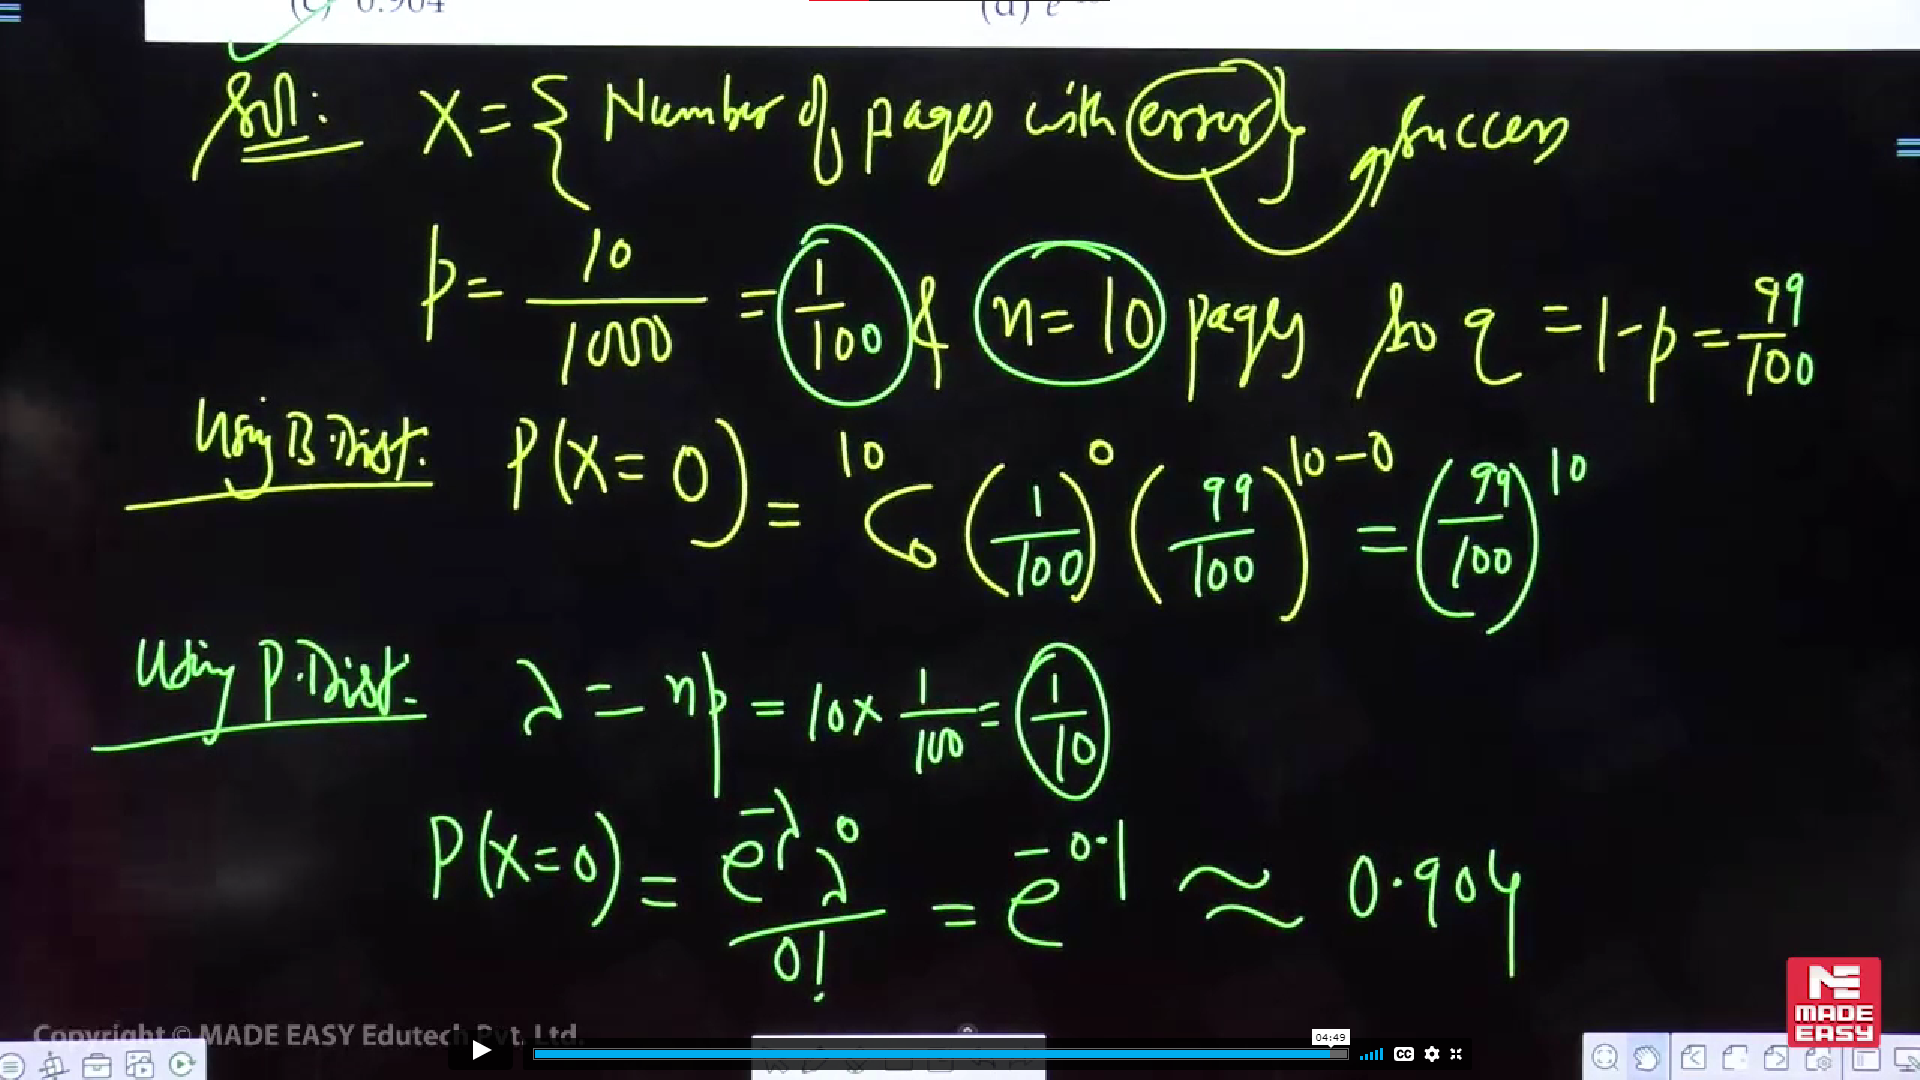 (c) 0.904 (d) e
Sol: X = { Number of pages with error } Success
p = 10/1000 = 1/100 & n = 10 pages so q = 1 - p = 99/100
Using B.Dist. P(X = 0) = ¹⁰C₀ (1/100)⁰ (99/100)¹⁰⁻⁰ = (99/100)¹⁰
Using P.Dist. λ = np = 10 × 1/100 = 1/10
P(X=0) = e^-λ λ⁰ / 0! = e^-0.1 ≈ 0.904
ME
MADE
EASY
Copyright © MADE EASY Edutech Pvt. Ltd.
04:49
CC